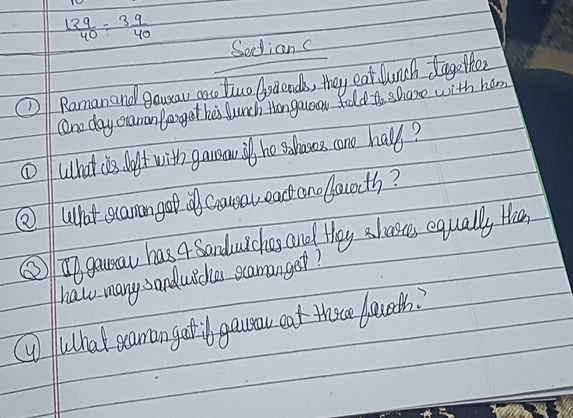 129/40 = 3 9/40
Section C
① Raman and gaurav are two friends, they eat lunch together
One day raman forgot his lunch then gaurav told to share with him
① What is left with gaurav if he shares one half?
② What raman got if Gaurav eact one fourth?
③ If gaurav has 4 Sandwiches and they shares equally then
how many sandwiches raman get?
④ What raman got if gaurav eat three fourth?